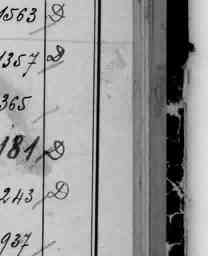 1563 D
1357 D
365
181 D
243 D
937